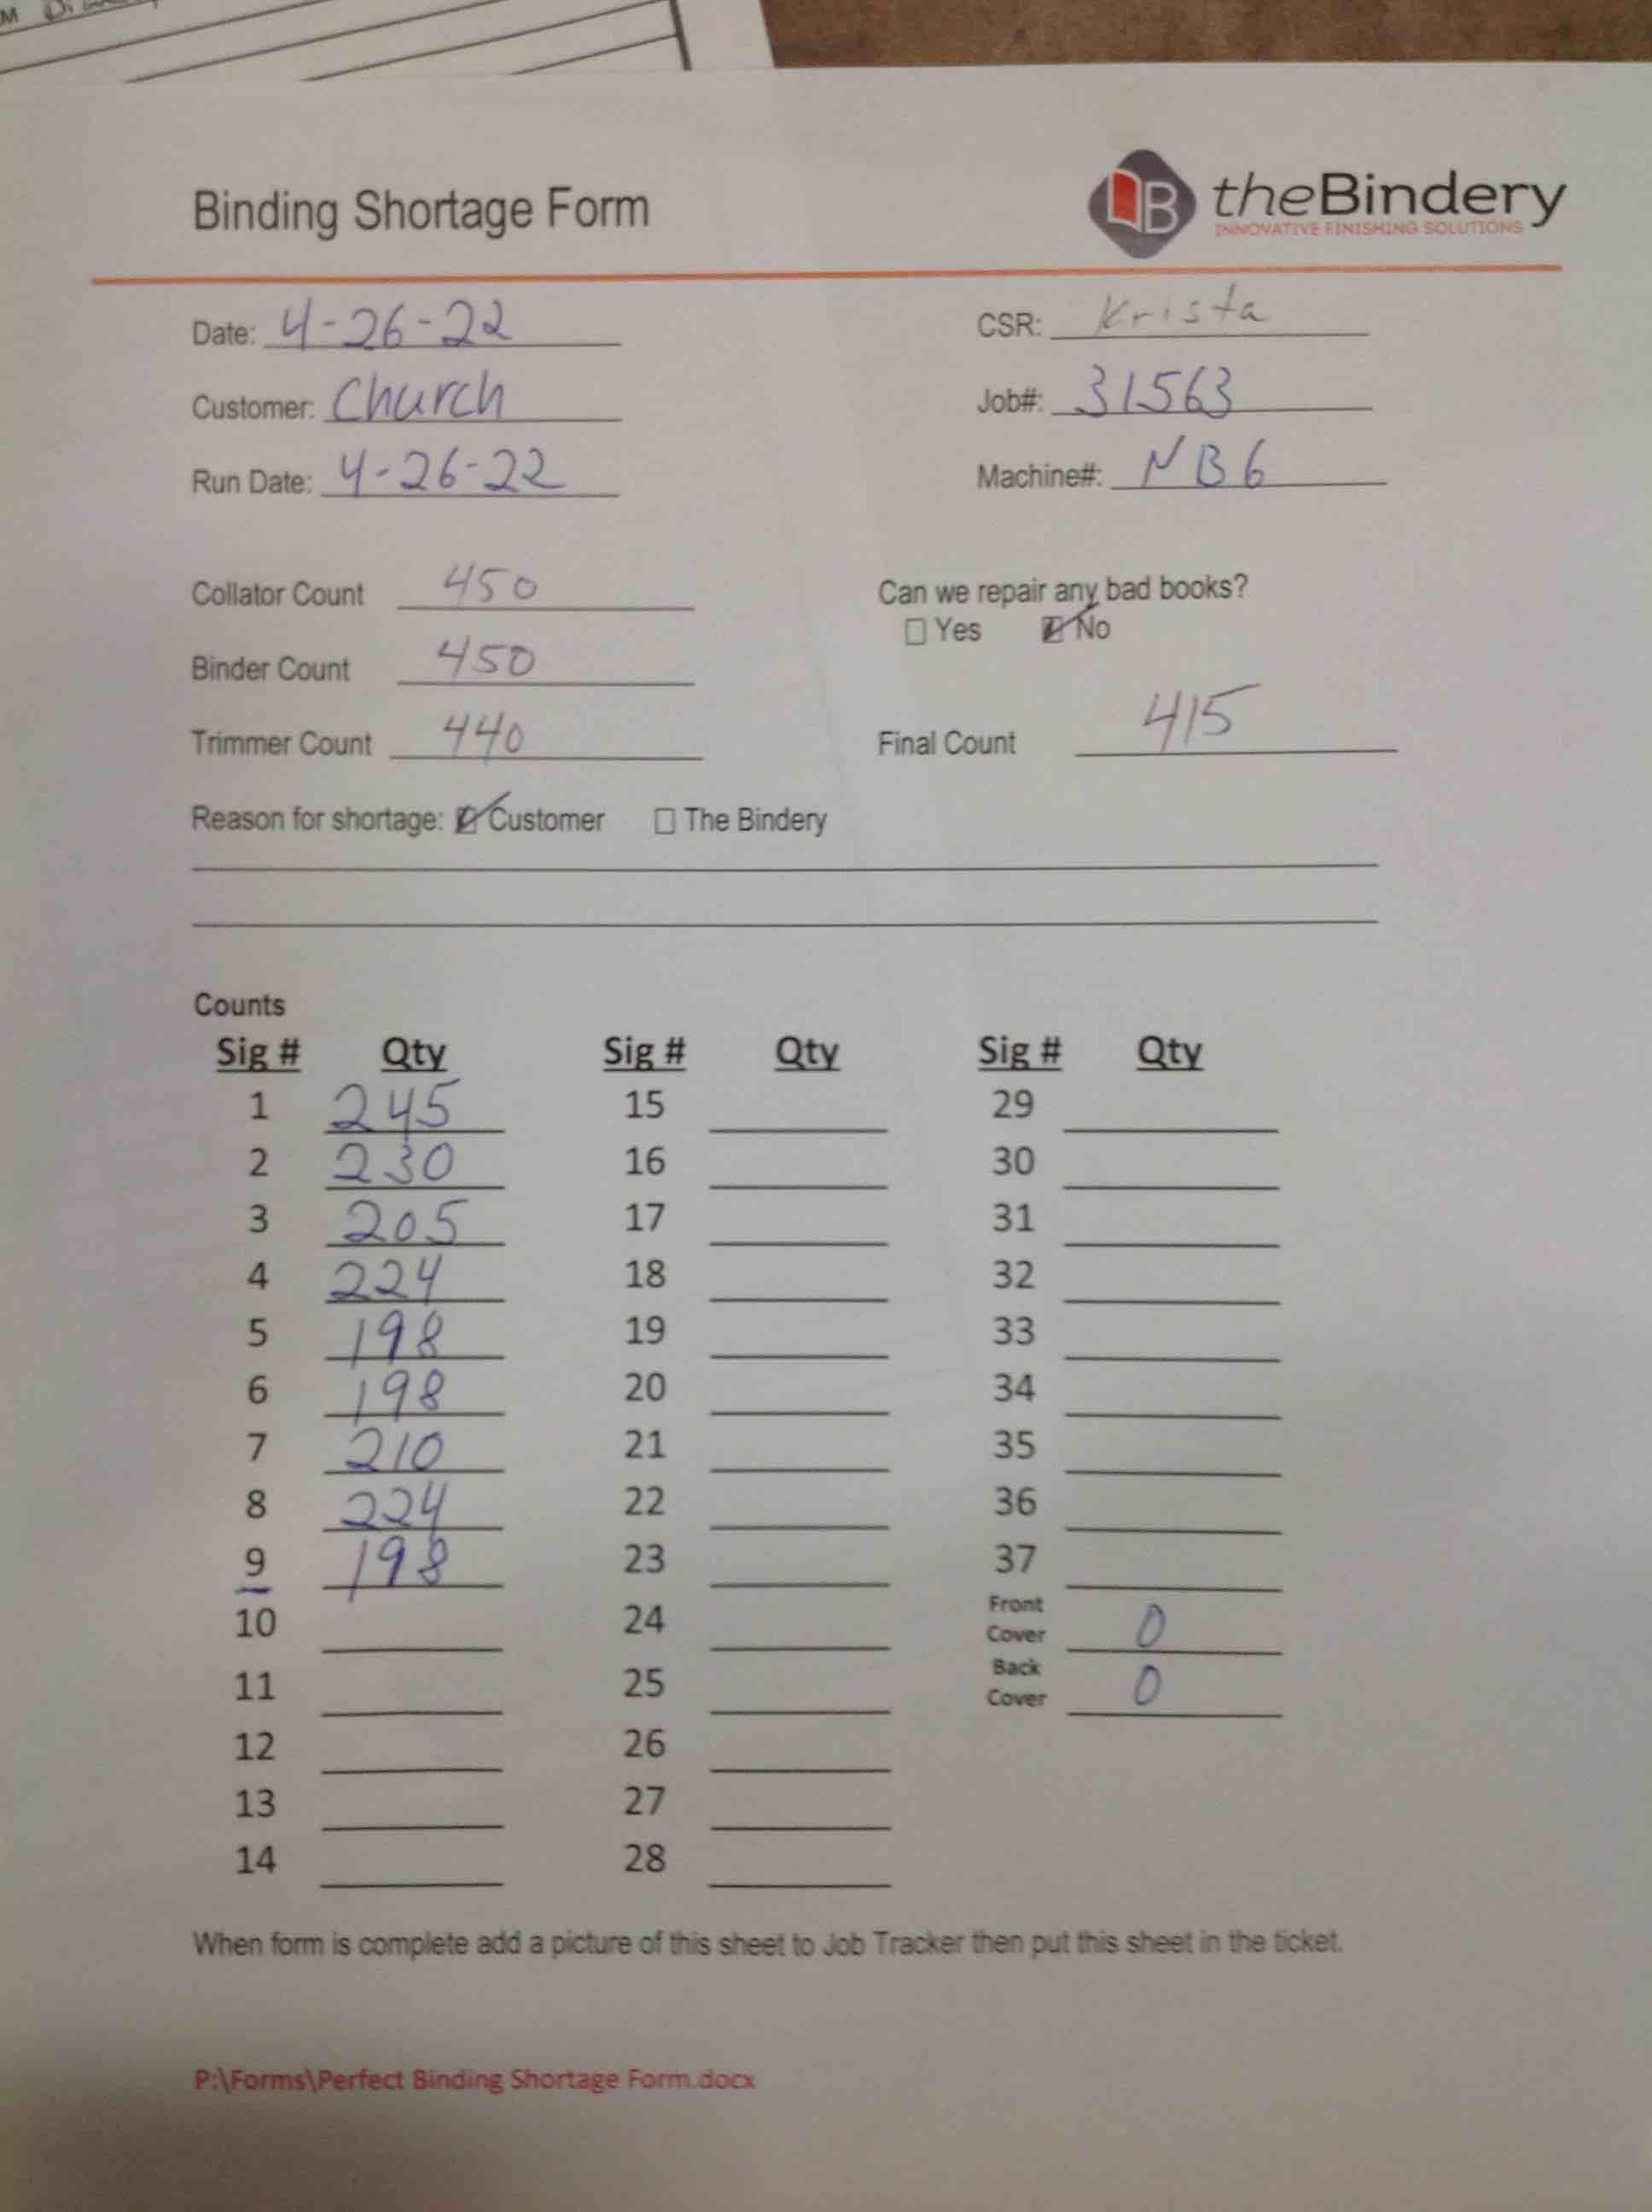 Binding Shortage Form
B theBindery
INNOVATIVE FINISHING SOLUTIONS
Date: 4-26-22 CSR: Krista
Customer: Church Job#: 31563
Run Date: 4-26-22 Machine#: NB6
Collator Count 450 Can we repair any bad books?
☐ Yes ☑ No
Binder Count 450
Trimmer Count 440 Final Count 415
Reason for shortage: ☑ Customer ☐ The Bindery
Counts
Sig # Qty Sig # Qty Sig # Qty
1 245 15 29
2 230 16 30
3 205 17 31
4 224 18 32
5 198 19 33
6 198 20 34
7 210 21 35
8 224 22 36
9 198 23 37
10 24 Front Cover 0
11 25 Back Cover 0
12 26
13 27
14 28
When form is complete add a picture of this sheet to Job Tracker then put this sheet in the ticket.
P:\Forms\Perfect Binding Shortage Form.docx